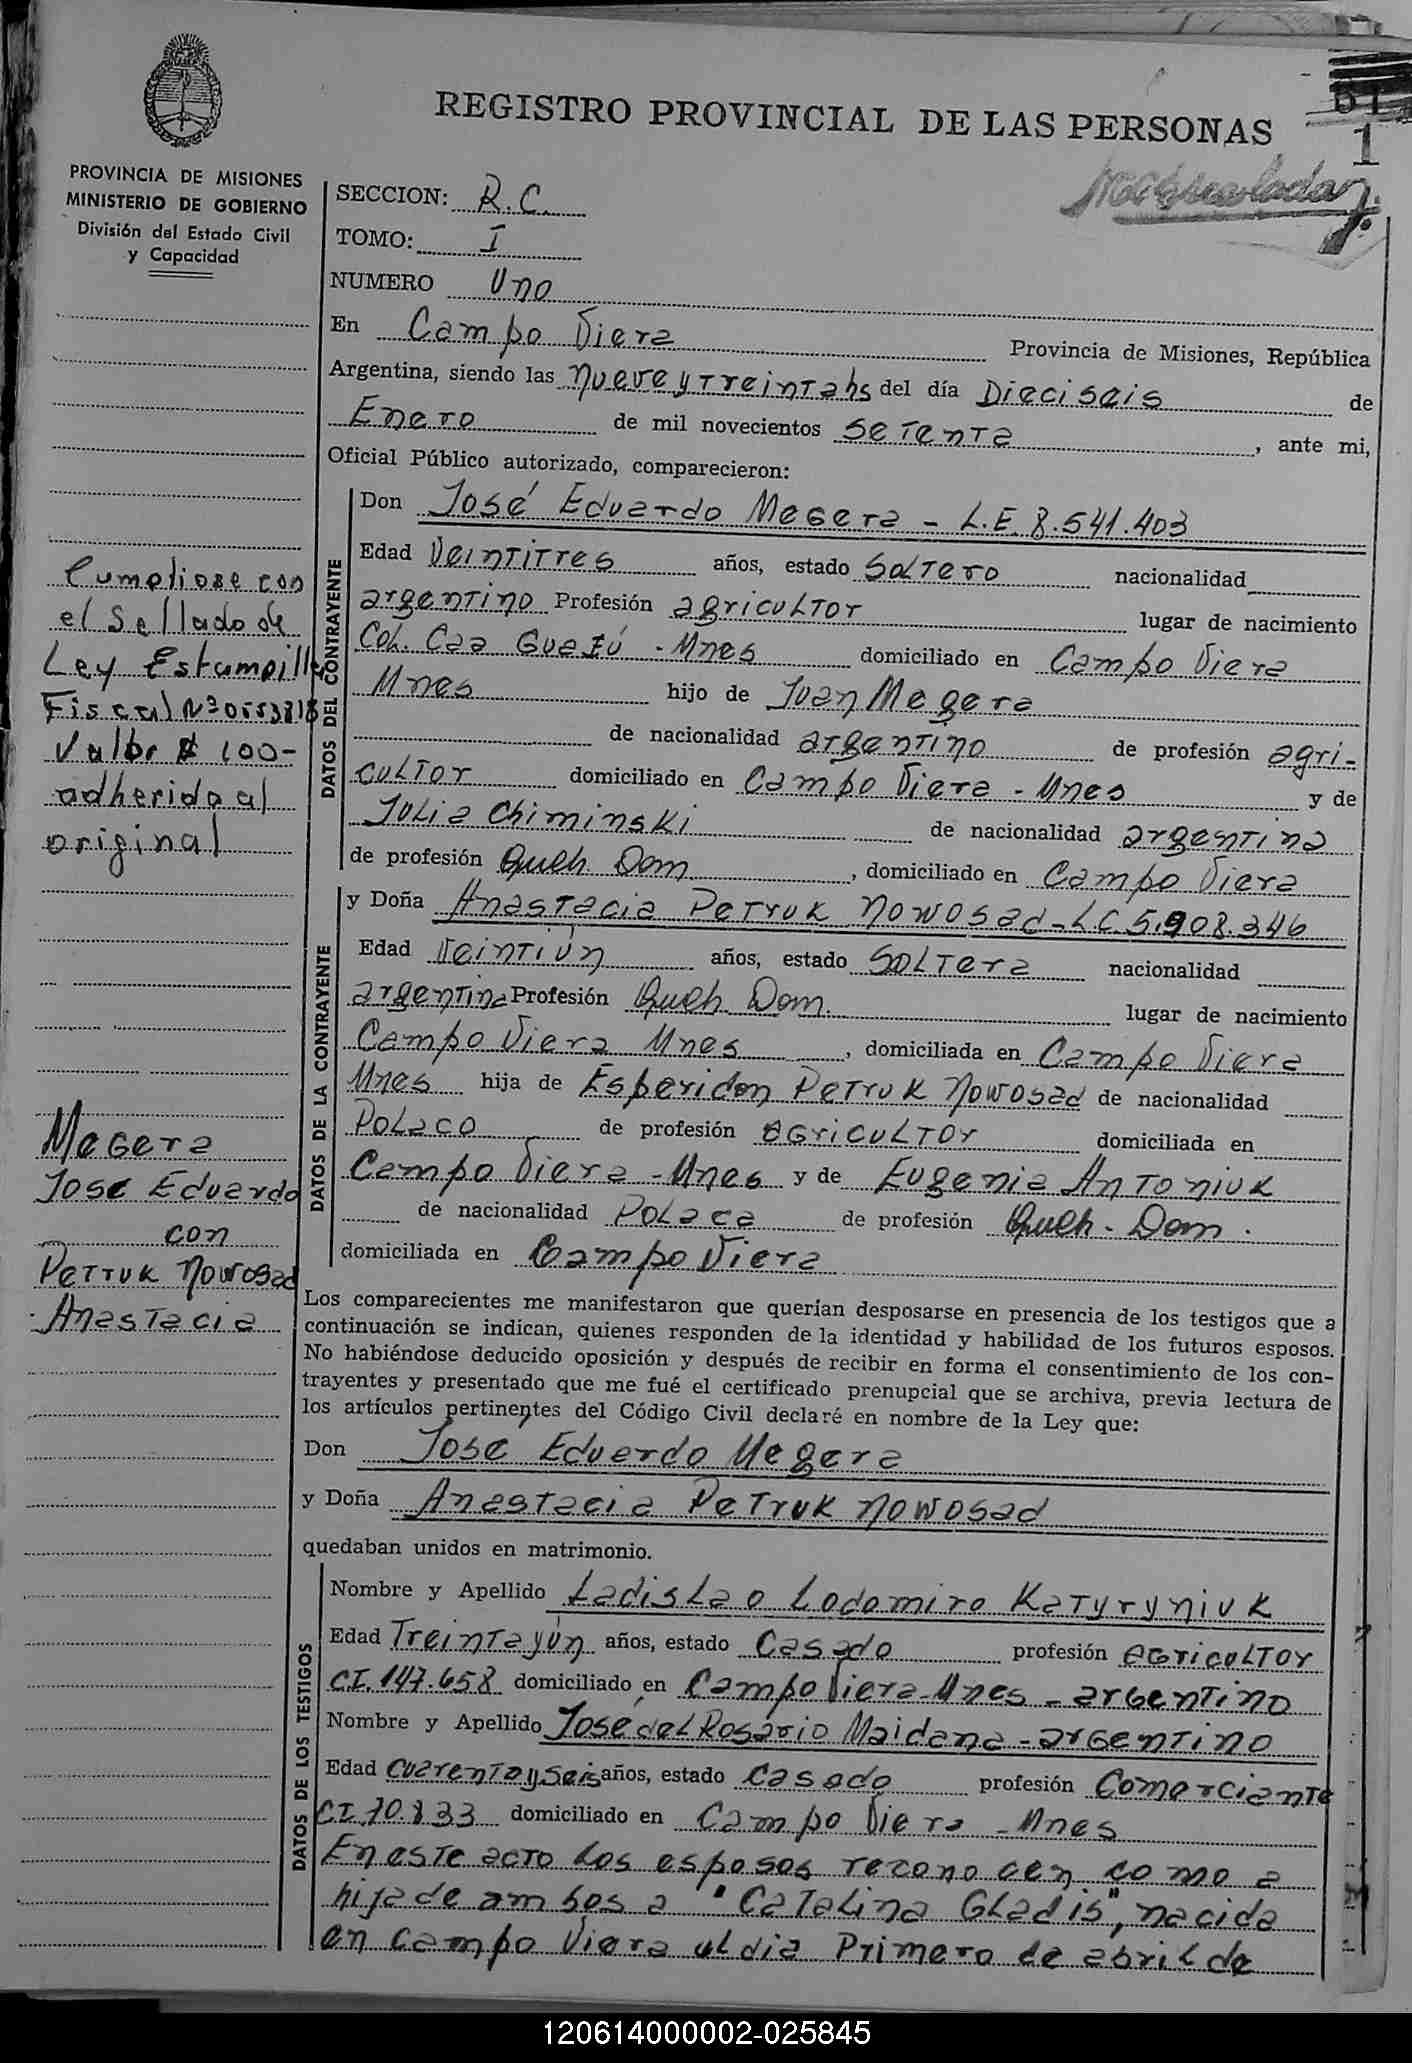 REGISTRO PROVINCIAL DE LAS PERSONAS
1
PROVINCIA DE MISIONES
MINISTERIO DE GOBIERNO
División del Estado Civil
y Capacidad
SECCION: R.C.
TOMO: I
NUMERO Uno
En Campo Viera Provincia de Misiones, República
Argentina, siendo las nueve y treinta hs del día Dieciseis de
Enero de mil novecientos setenta, ante mi,
Oficial Público autorizado, comparecieron:
DATOS DEL CONTRAYENTE
Don José Eduardo Megera - L.E 8.541.403
Edad Veintitres años, estado Soltero nacionalidad
argentino Profesión agricultor lugar de nacimiento
Col. Caa Guazú - Mnes domiciliado en Campo Viera
Mnes hijo de Juan Megera
de nacionalidad argentino de profesión agri-
cultor domiciliado en Campo Viera - Mnes y de
Julia Chiminski de nacionalidad argentina
de profesión Queh Dom, domiciliado en Campo Viera
DATOS DE LA CONTRAYENTE
y Doña Anastacia Petruk Nowosad - L.C. 5.908.346
Edad Veintiún años, estado Soltera nacionalidad
argentina Profesión Queh. Dom. lugar de nacimiento
Campo Viera Mnes, domiciliada en Campo Viera
Mnes hija de Esperidon Petruk Nowosad de nacionalidad
Polaco de profesión agricultor domiciliada en
Campo Viera - Mnes y de Eugenia Antoniuk
de nacionalidad Polaca de profesión Queh. Dom.
domiciliada en Campo Viera
Los comparecientes me manifestaron que querían desposarse en presencia de los testigos que a
continuación se indican, quienes responden de la identidad y habilidad de los futuros esposos.
No habiéndose deducido oposición y después de recibir en forma el consentimiento de los con-
trayentes y presentado que me fué el certificado prenupcial que se archiva, previa lectura de
los artículos pertinentes del Código Civil declaré en nombre de la Ley que:
Don José Eduardo Megera
y Doña Anastacia Petruk Nowosad
quedaban unidos en matrimonio.
DATOS DE LOS TESTIGOS
Nombre y Apellido Ladislao Lodomiro Katyryniuk
Edad Treinta y ún años, estado Casado profesión agricultor
CI. 147.658 domiciliado en Campo Viera - Mnes - argentino
Nombre y Apellido José del Rosario Maidana - argentino
Edad cuarenta y seis años, estado Casado profesión Comerciante
CI. 70.833 domiciliado en Campo Viera - Mnes
En este acto los esposos reconocen como a
hija de ambos a "Catalina Gladis", nacida
en campo Viera el dia Primero de abril de
Cumpliose con
el Sellado de
Ley Estampilla
Fiscal Nº
Valor $ 100-
adherido al
original
Megera
Jose Eduardo
con
Petruk Nowosad
Anastacia
120614000002-025845